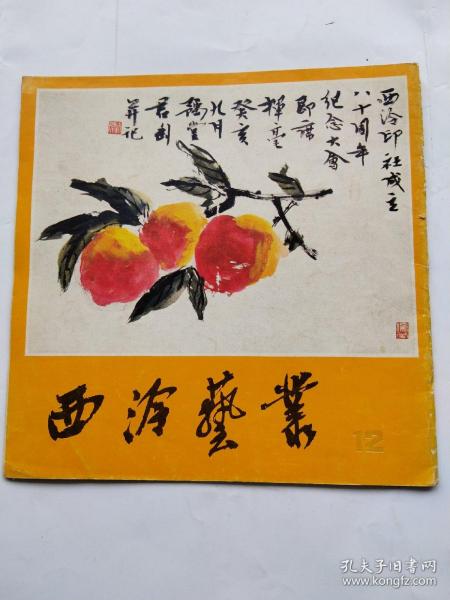 西泠印社成立
八十周年
纪念大会
即席
挥毫
癸亥
九月
君匋
并记
西泠艺丛
12
孔夫子旧书网
www.kongfz.com